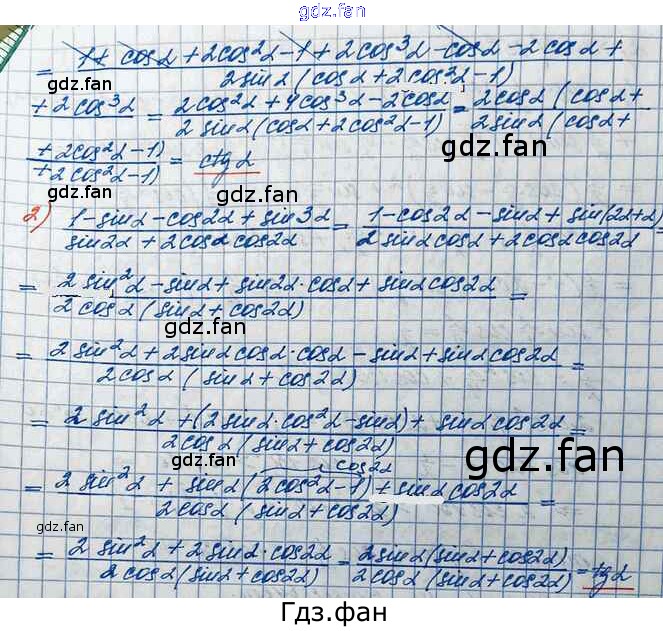 gdz.fan
= (1 + cosα + 2cos²α - 1 + 2cos³α - cosα - 2cosα +) / (2sinα (cosα + 2cos²α - 1))
gdz.fan
(+ 2cos³α) = (2cos²α + 4cos³α - 2cosα) / (2sinα (cosα + 2cos²α - 1)) = (2cosα (cosα +) / (2sinα (cosα +)
(+ 2cos²α - 1)) / (+ 2cos²α - 1)) = ctgα
gdz.fan
gdz.fan
2) (1 - sinα - cos2α + sin3α) / (sin2α + 2cosα cos2α) = (1 - cos2α - sinα + sin(2α + α)) / (2sinα cosα + 2cosα cos2α) =
= (2sin²α - sinα + sin2α · cosα + sinα cos2α) / (2cosα (sinα + cos2α)) =
gdz.fan
= (2sin²α + 2sinα cosα · cosα - sinα + sinα cos2α) / (2cosα (sinα + cos2α)) =
= (2sin²α + (2sinα · cos²α - sinα) + sinα cos2α) / (2cosα (sinα + cos2α)) =
gdz.fan
gdz.fan
cos2α
= (2sin²α + sinα (2cos²α - 1) + sinα cos2α) / (2cosα (sinα + cos2α)) =
gdz.fan
= (2sin²α + 2sinα · cos2α) / (2cosα (sinα + cos2α)) = (2sinα (sinα + cos2α)) / (2cosα (sinα + cos2α)) = tgα
gdz.fan
Гдз.фан